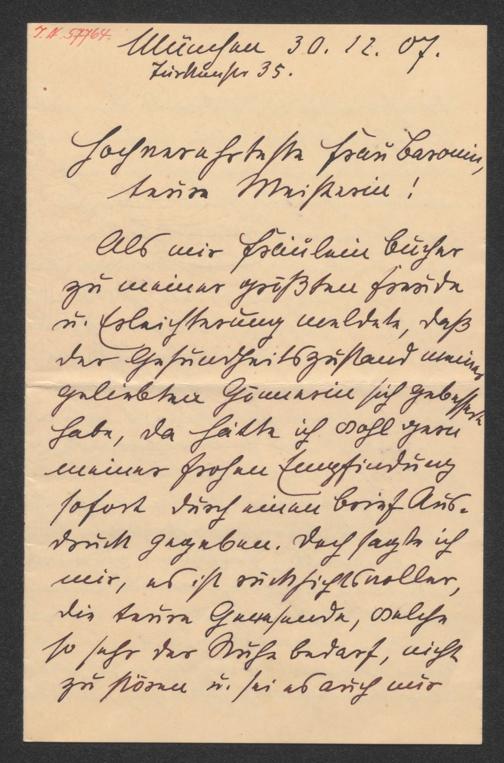 I.N. 57764.
München 30. 12. 07.
Türkenstr 35.
Hochverehrteste Frau Baronin,
teure Meisterin!
Als mir Fräulein Bucher
zu meiner größten Freude
u. Erleichterung meldete, daß
der Gesundheitszustand meiner
geliebten Gönnerin sich gebessert
habe, da hätte ich wohl gern
meiner frohen Empfindung
sofort durch einen Brief Aus-
druck gegeben. Doch sagte ich
mir, es ist rücksichtsvoller,
die teure Genesende, welche
so sehr der Ruhe bedarf, nicht
zu stören u. sei es auch nur